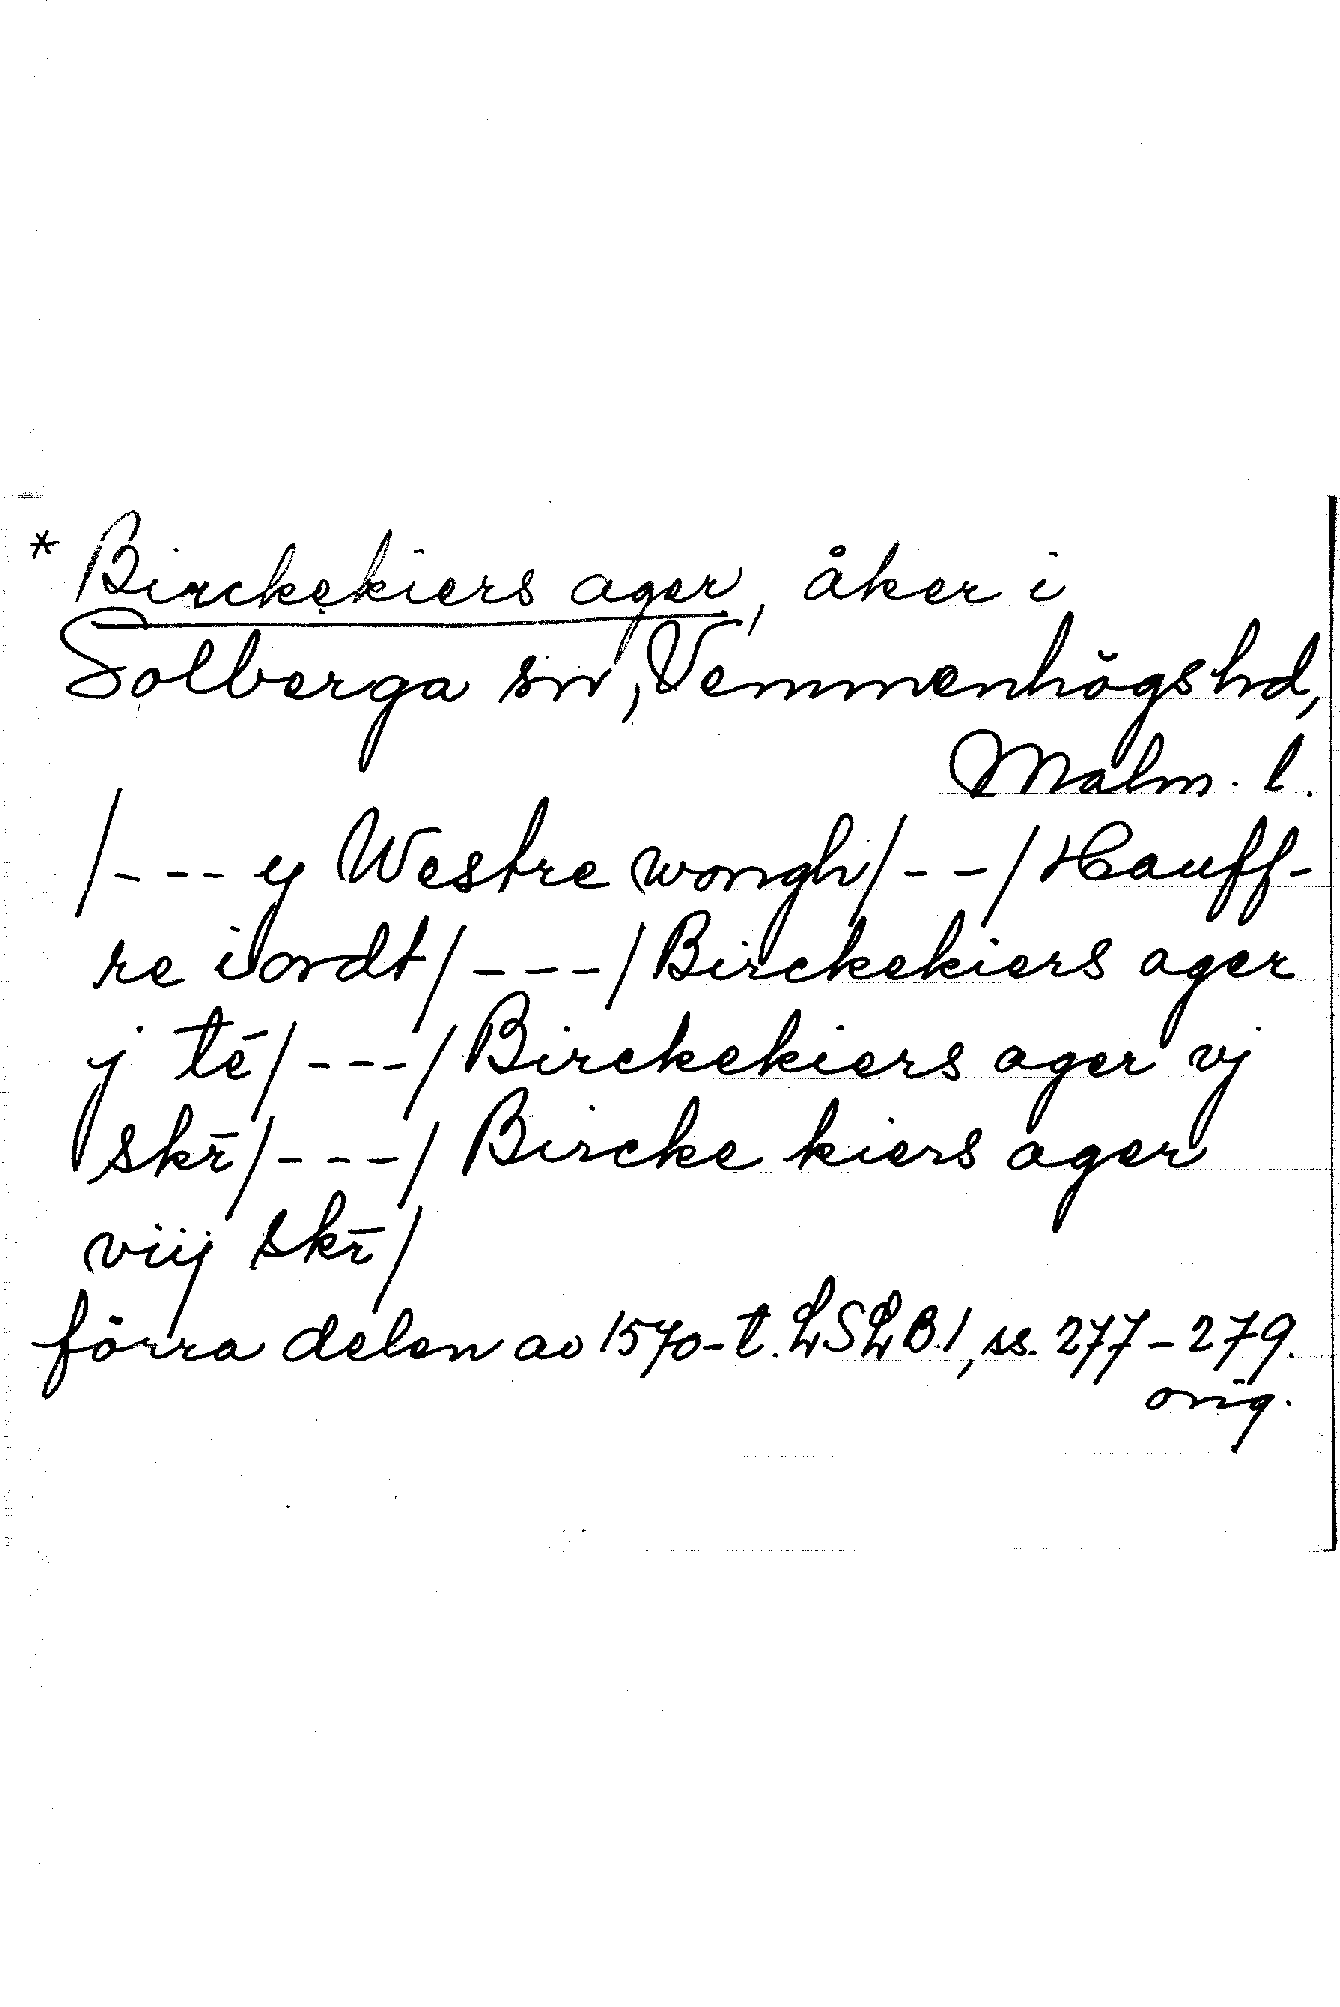 * Birckekiers ager, åker i
Solberga sn, Vemmenhögs hd,
Malm. l.
/--- y Westre wongh/--/Hauff-
re iordt/---/Birckekiers ager
j tē/---/Birckekiers ager vj
skr̄/---/Bircke kiers ager
viij skr̄/
förra delen av 1570-t. LSLB 1, ss. 277-279.
orig.